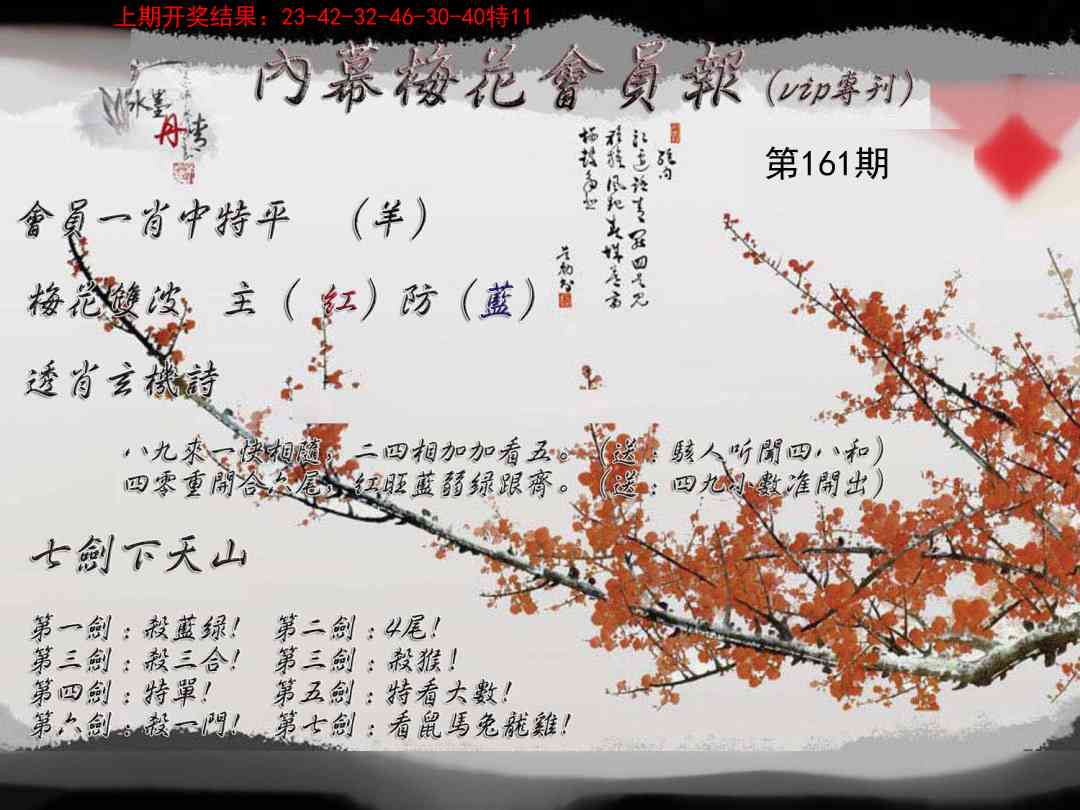 上期开奖结果：23-42-32-46-30-40特11
內幕梅花會員報(vip專刊)
水墨丹青
第161期
會員一肖中特平 （羊）
梅花雙波 主（紅）防（藍）
透肖玄機詩
八九來一快相隨，二四相加加看五。（送：駭人听聞四八和）
四零重開合六尾，紅旺藍弱绿跟齊。（送：四九小數准開出）
七劍下天山
第一劍：殺藍绿！ 第二劍：4尾！
第三劍：殺三合！ 第三劍：殺猴！
第四劍：特單！ 第五劍：特看大數！
第六劍：殺一門！ 第七劍：看鼠馬兔龍雞！